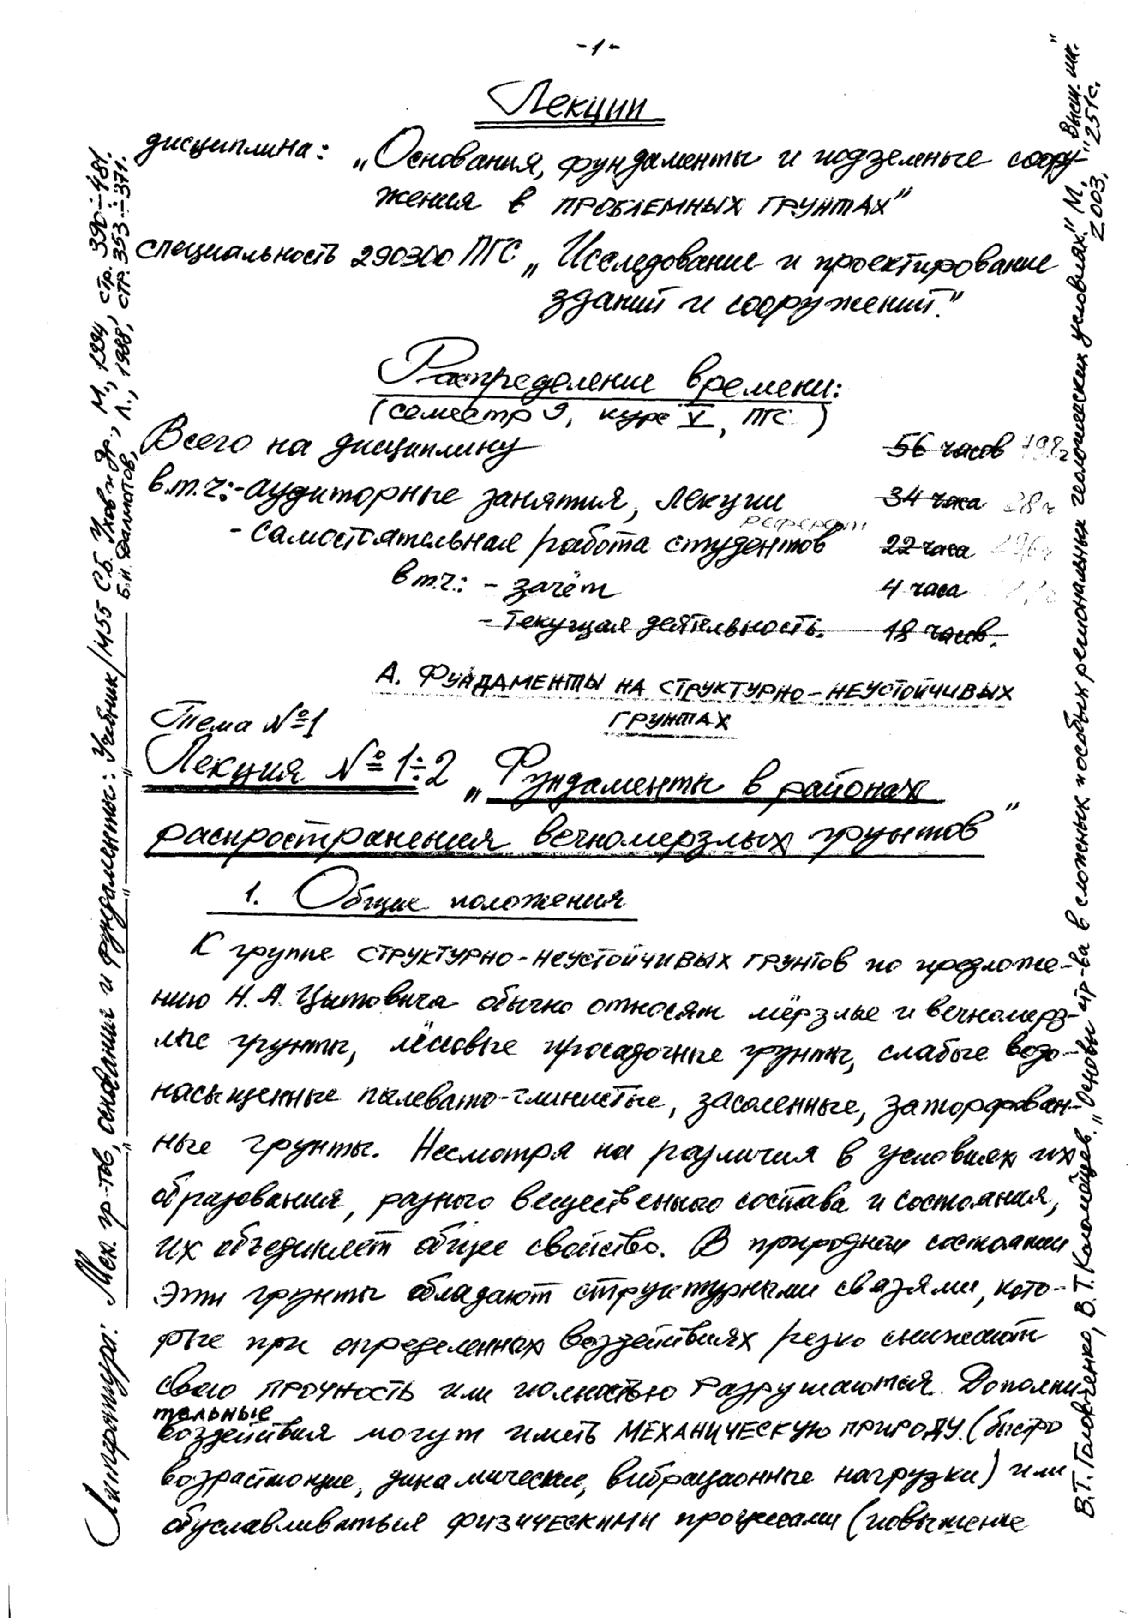 -1-
Лекции
дисциплина: „Основания, фундаменты и подземные соору-
жения в ПРОБЛЕМНЫХ ГРУНТАХ"
специальность 290300 ПГС „Исследование и проектирование
зданий и сооружений."
Распределение времени:
(семестр 9, курс V, ПГС)
Всего на дисциплину 56 часов 198ч
в.т.ч:-аудиторные занятия, лекции 34 часа 28ч
реферат
- самостоятельная работа студентов 22 часа
в т.ч.: - зачёт 4 часа
- текущая деятельность. 18 часов.
А. ФУНДАМЕНТЫ НА СТРУКТУРНО-НЕУСТОЙЧИВЫХ
ГРУНТАХ
Тема №1
Лекция №1÷2 „Фундаменты в районах
распространения вечномерзлых грунтов"
1. Общие положения
К группе СТРУКТУРНО-НЕУСТОЙЧИВЫХ ГРУНТОВ по предложе-
нию Н.А. Цытовича обычно относят мёрзлые и вечномерз-
лые грунты, лёссовые просадочные грунты, слабые водо-
насыщенные пылевато-глинистые, засоленные, заторфован-
ные грунты. Несмотря на различия в условиях их
образования, разного вещественного состава и состояния,
их объединяет общее свойство. В природном состоянии
эти грунты обладают структурными связями, кото-
рые при определенных воздействиях резко снижают
свою ПРОЧНОСТЬ или полностью разрушаются. Дополни
тельные
воздействия могут иметь МЕХАНИЧЕСКУЮ ПРИРОДУ (быстро
возрастающие, динамические, вибрационные нагрузки) или
обуславливаться ФИЗИЧЕСКИМИ процессами (повышение
Литература: Мех. гр-тов, основания и фундаменты: Учебник/М55 С.Б. Ухов и др., М., 1994, стр. 390÷481.
Б.И. Далматов, Л., 1988, стр. 353÷371.
В.Т. Головченко, В.Т. Коломийцев. „Основы стр-ва в сложных и особых региональных геологических условиях." М., „Высш. шк."
2003, 251с.